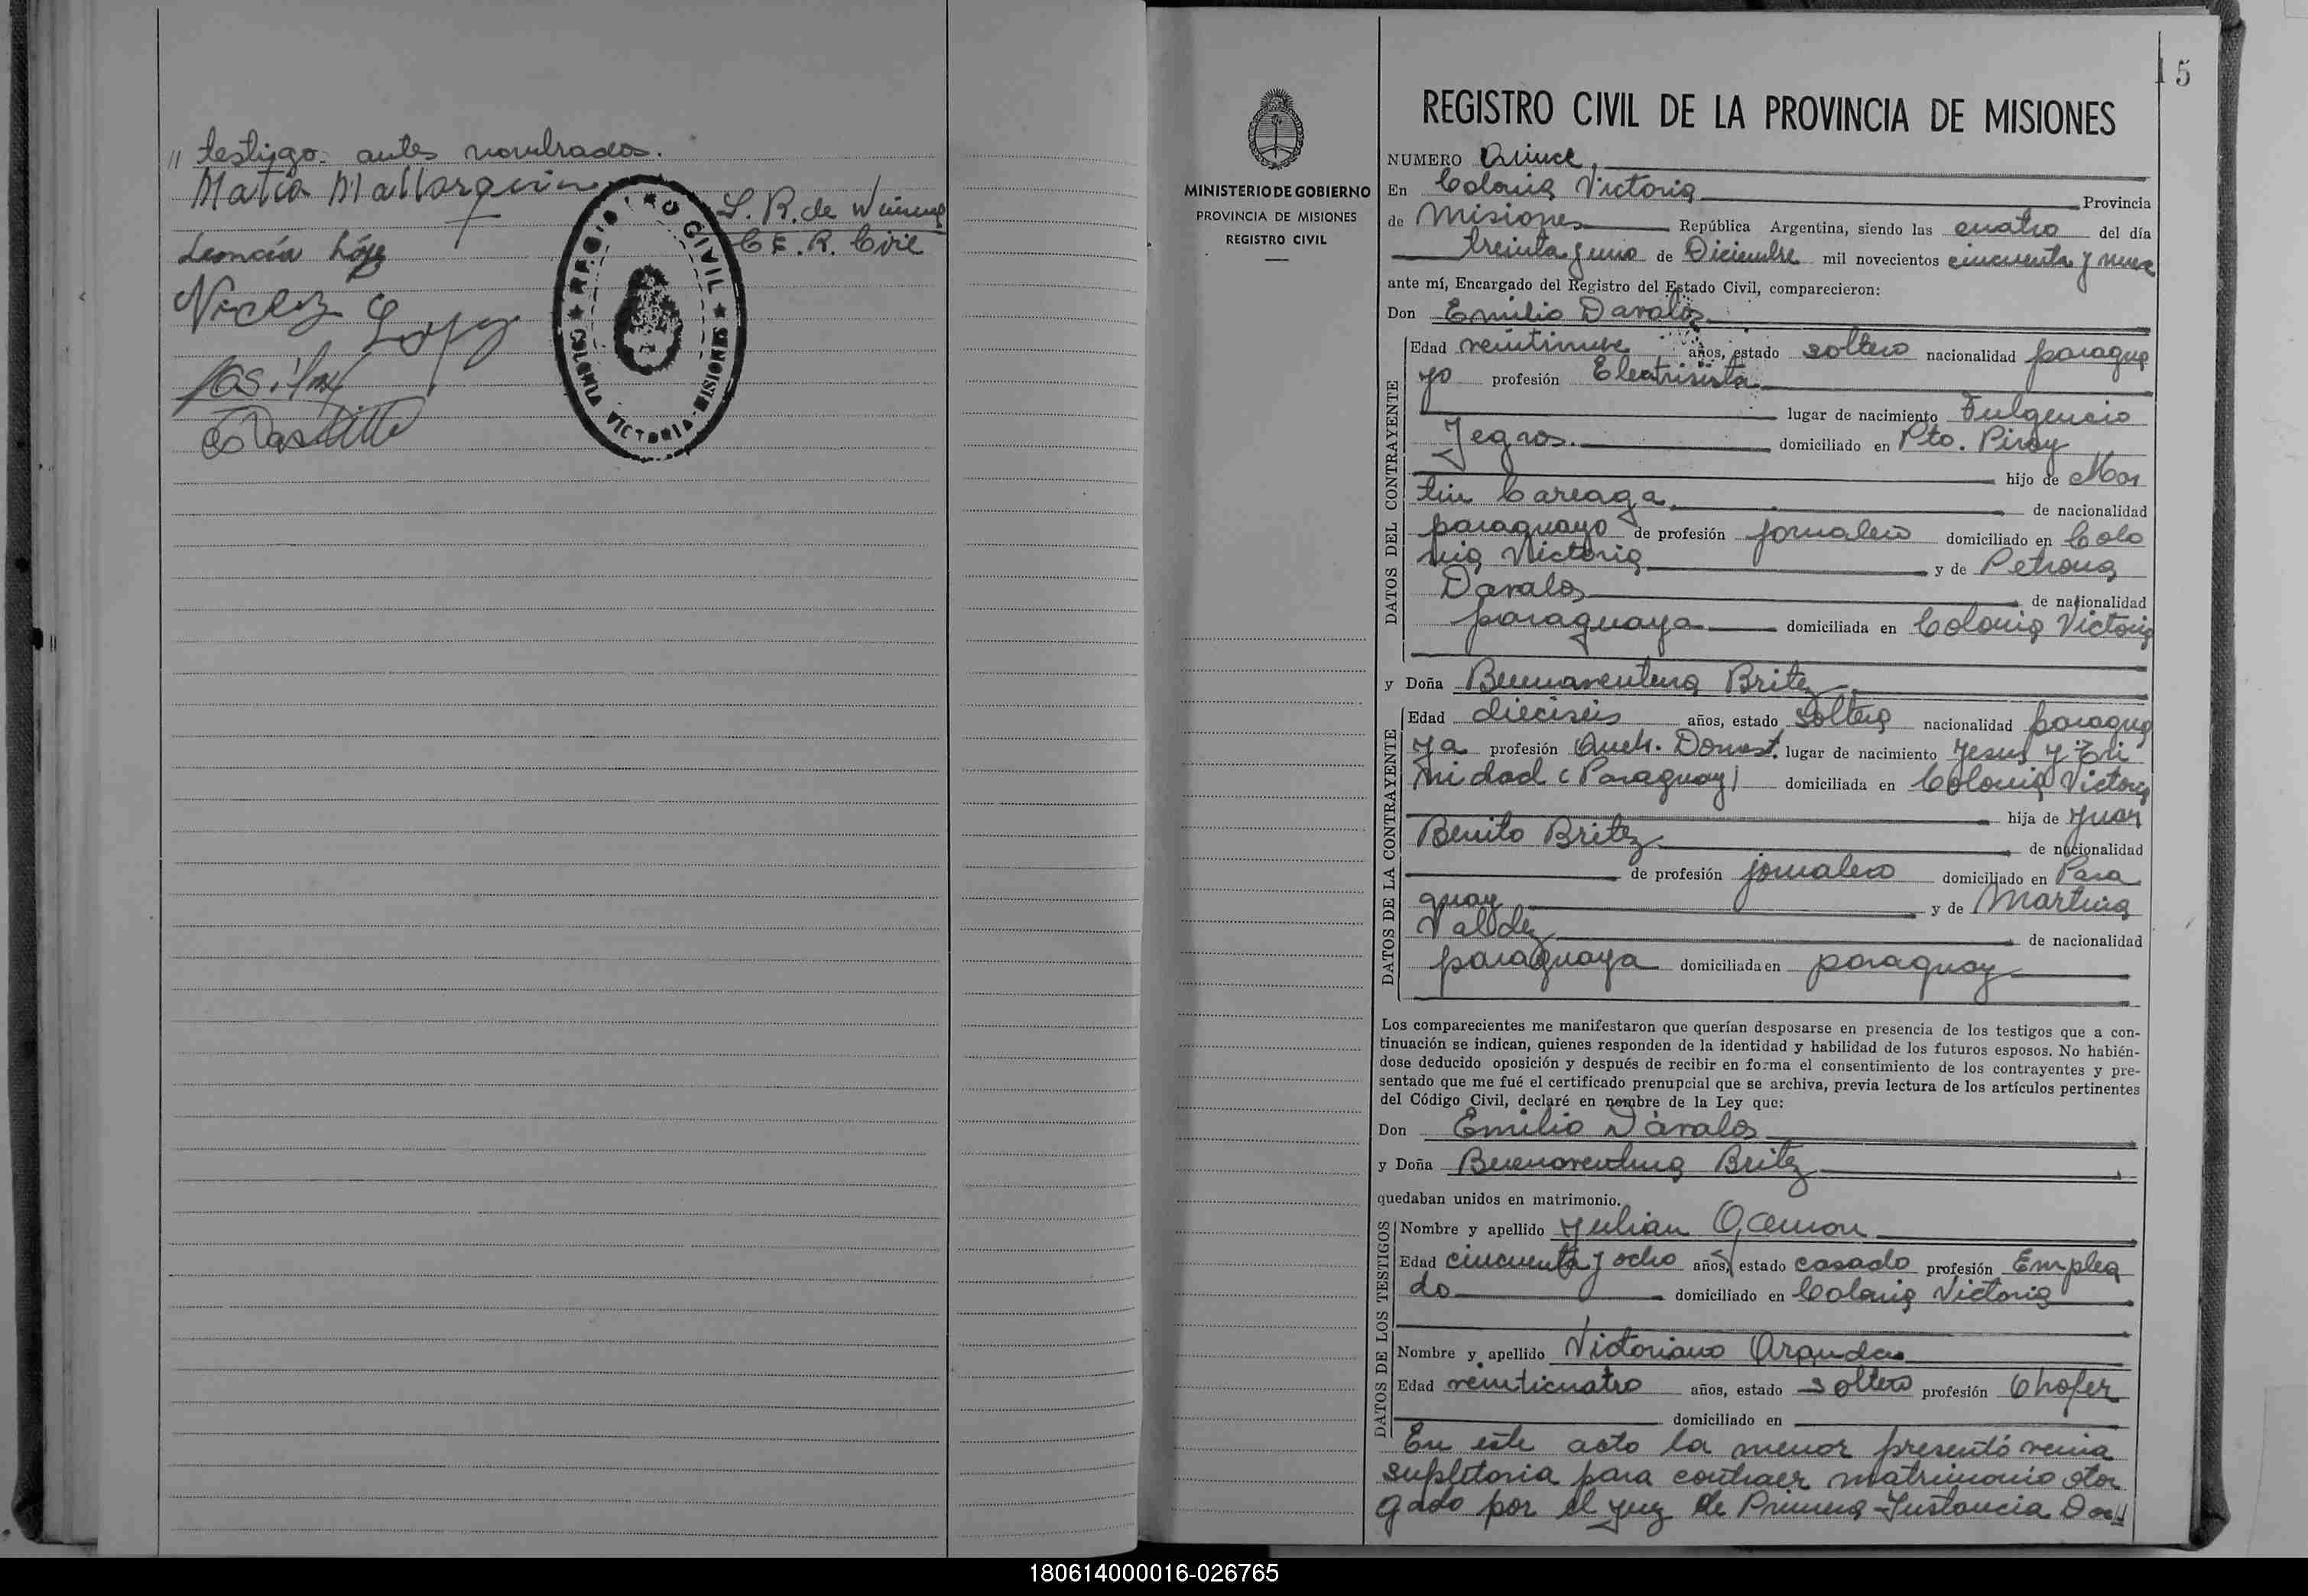 " testigo antes nombrados.
Matia Mallorquin
S. R. de
C E. R. Civil
Leoncia López
López
REGISTRO CIVIL
COLONIA VICTORIA - MISIONES
15
REGISTRO CIVIL DE LA PROVINCIA DE MISIONES
MINISTERIO DE GOBIERNO
PROVINCIA DE MISIONES
REGISTRO CIVIL
NUMERO Quince.
En Colonia Victoria Provincia
de Misiones República Argentina, siendo las cuatro del día
treinta y uno de Diciembre mil novecientos cincuenta y nueve
ante mí, Encargado del Registro del Estado Civil, comparecieron:
Don Emilio Davalos
DATOS DEL CONTRAYENTE
Edad veintinueve años, estado soltero nacionalidad paragua
yo profesión Electrisista
lugar de nacimiento Fulgencio
Yegros. domiciliado en Pto. Piray
hijo de Mar
tin Careaga de nacionalidad
paraguayo de profesión jornalero domiciliado en Colo
nia Victoria y de Petrona
Davalos de nacionalidad
paraguaya domiciliada en Colonia Victoria
y Doña Buenaventura Britez
DATOS DE LA CONTRAYENTE
Edad dieciseis años, estado Soltera nacionalidad paragua
ya profesión Queh. Domest. lugar de nacimiento Jesus y Tri
nidad (Paraguay) domiciliada en Colonia Victoria
hija de Juan
Benito Britez de nacionalidad
de profesión jornalero domiciliado en Para
guay y de Martina
Valdez de nacionalidad
paraguaya domiciliada en paraguay
Los comparecientes me manifestaron que querían desposarse en presencia de los testigos que a con-
tinuación se indican, quienes responden de la identidad y habilidad de los futuros esposos. No habién-
dose deducido oposición y después de recibir en forma el consentimiento de los contrayentes y pre-
sentado que me fué el certificado prenupcial que se archiva, previa lectura de los artículos pertinentes
del Código Civil, declaré en nombre de la Ley que:
Don Emilio Dávalos
y Doña Buenaventura Britez
quedaban unidos en matrimonio.
DATOS DE LOS TESTIGOS
Nombre y apellido Julian
Edad cincuenta y ocho años, estado casado profesión Emplea
do domiciliado en Colonia Victoria
Nombre y apellido Victoriano Aranda
Edad veinticuatro años, estado soltero profesión Chofer
domiciliado en
En este acto la menor presentó venia
supletoria para contraer matrimonio otor
gado por el Juez de Primera Instancia Doc"
180614000016-026765